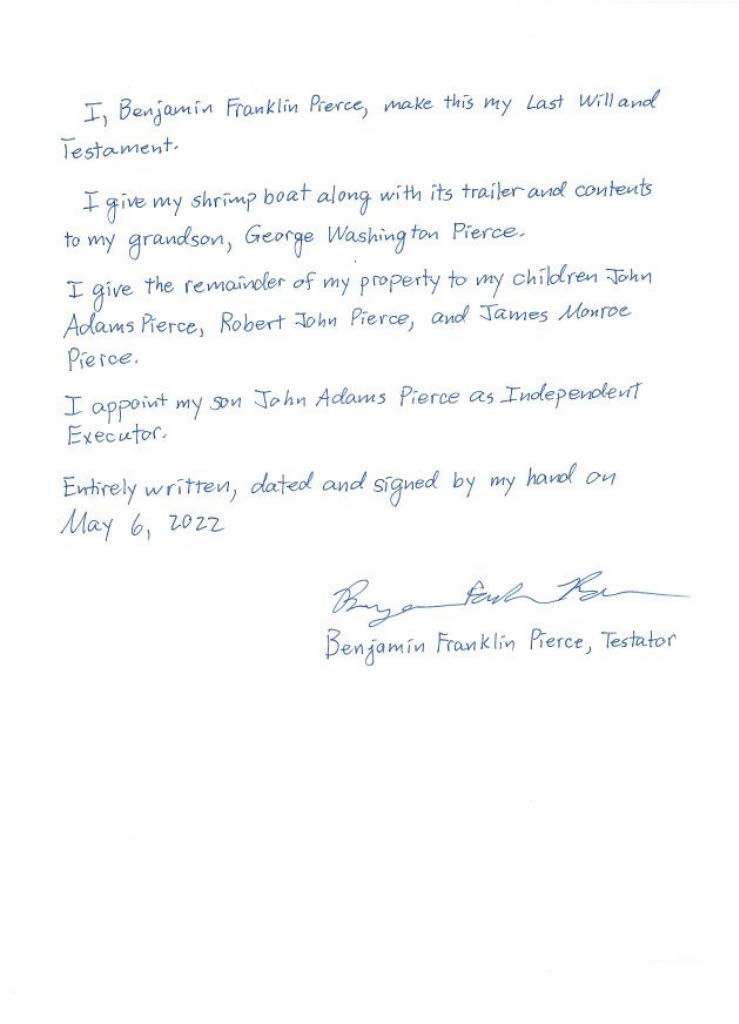 I, Benjamin Franklin Pierce, make this my Last Will and
Testament.
I give my shrimp boat along with its trailer and contents
to my grandson, George Washington Pierce.
I give the remainder of my property to my children John
Adams Pierce, Robert John Pierce, and James Monroe
Pierce.
I appoint my son John Adams Pierce as Independent
Executor.
Entirely written, dated and signed by my hand on
May 6, 2022
Benjamin Franklin Pierce, Testator